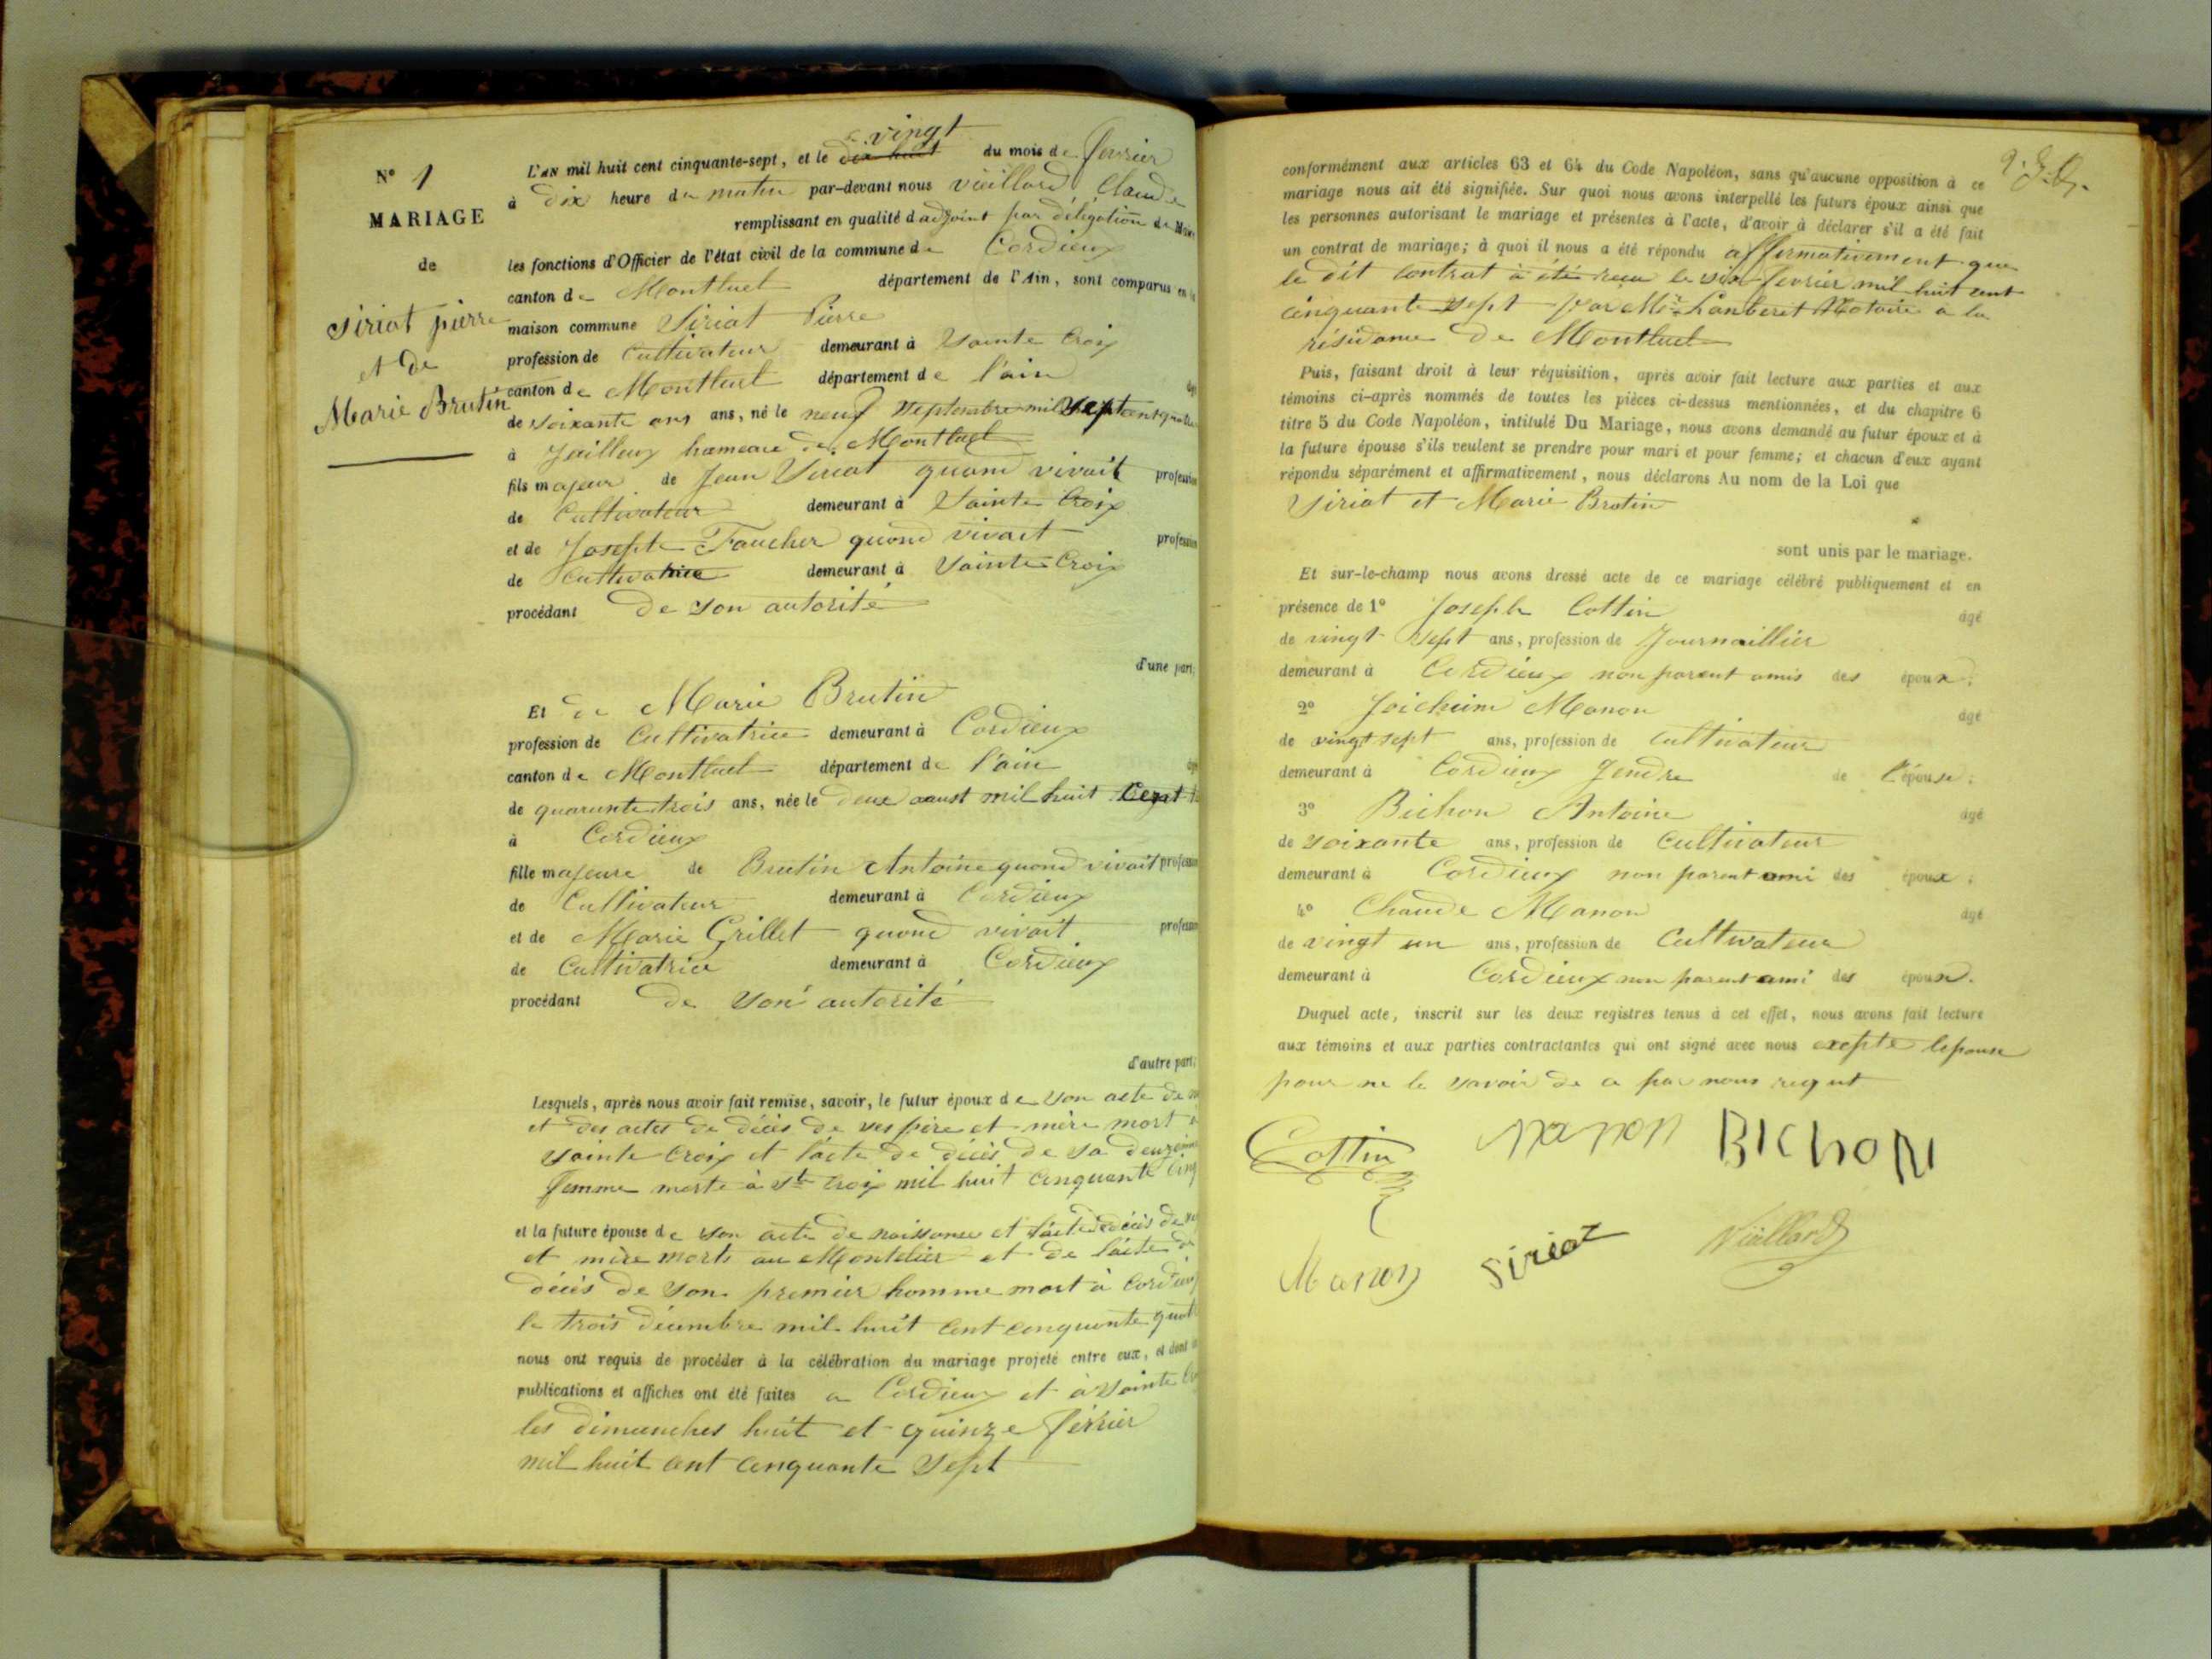 N° 1
MARIAGE
de
Siriat pierre
et de
Marie Brutin
vingt
L'AN mil huit cent cinquante-sept, et le dix huit du mois de fevrier
à dix heure du matin par-devant nous vieillard Claude
remplissant en qualité d'adjoint par déligation de
les fonctions d'Officier de l'état civil de la commune de Cordieux
canton de Montluel département de l'Ain, sont comparus en
maison commune Siriat Pierre
profession de Cultivateur demeurant à Sainte Croix
canton de Montluel département de l'ain
de soixante ans ans, né le neuf Septembre mil sept cent
à Jailleux hameau de Montluel
fils majeur de Jean Siriat quand vivait profession
de Cultivateur demeurant à Sainte Croix
et de Josephte Faucher quand vivait profession
de Cultivatrice demeurant à Sainte Croix
procédant de son autorité
d'une part;
Et de Marie Brutin
profession de Cultivatrice demeurant à Cordieux
canton de Montluel département de l'ain
de quarante trois ans, née le deux aoust mil huit Cent
à Cordieux
fille majeure de Brutin Antoine quand vivait profession
de Cultivateur demeurant à Cordieux
et de Marie Grillet quand vivait profession
de Cultivatrice demeurant à Cordieux
procédant de son autorité
d'autre part;
Lesquels, après nous avoir fait remise, savoir, le futur époux de son acte de
et des actes de décès de ses père et mère mort
Sainte Croix et l'acte de décès de sa deuxième
femme morte à Ste Croix mil huit cinquante cinq
et la future épouse de son acte de naissance et l'acte de décès de
et mère morts au Montelier et de l'acte de
décès de son premier homme mort à Cordieux
le trois décembre mil huit cent cinquante
nous ont requis de procéder à la célébration du mariage projeté entre eux, et dont
publications et affiches ont été faites a Cordieux et à Sainte
les dimanches huit et quinze février
mil huit cent cinquante sept
conformément aux articles 63 et 64 du Code Napoléon, sans qu'aucune opposition à ce
mariage nous ait été signifiée. Sur quoi nous avons interpellé les futurs époux ainsi que
les personnes autorisant le mariage et présentes à l'acte, d'avoir à déclarer s'il a été fait
un contrat de mariage; à quoi il nous a été répondu affirmativement que
le dit contrat à été reçu le six fevrier mil huit cent
cinquante sept par Me Lamberet Notaire a la
résidance de Montluel
Puis, faisant droit à leur réquisition, après avoir fait lecture aux parties et aux
témoins ci-après nommés de toutes les pièces ci-dessus mentionnées, et du chapitre 6
titre 5 du Code Napoléon, intitulé Du Mariage, nous avons demandé au futur époux et à
la future épouse s'ils veulent se prendre pour mari et pour femme; et chacun d'eux ayant
répondu séparément et affirmativement, nous déclarons Au nom de la Loi que
Siriat et Marie Brutin
sont unis par le mariage.
Et sur-le-champ nous avons dressé acte de ce mariage célébré publiquement et en
présence de 1° Joseph Cottin âgé
de vingt Sept ans, profession de Journaillier
demeurant à Cordieux non parent amis des époux;
2° Joichim Manon âgé
de vingt sept ans, profession de Cultivateur
demeurant à Cordieux Jendre de l'épouse;
3° Bichon Antoine âgé
de soixante ans, profession de Cultivateur
demeurant à Cordieux non parent ami des époux;
4° Claude Manon âgé
de vingt un ans, profession de Cultivateur
demeurant à Cordieux non parent ami des époux.
Duquel acte, inscrit sur les deux registres tenus à cet effet, nous avons fait lecture
aux témoins et aux parties contractantes qui ont signé avec nous exepté lepouse
pour ne le savoir de ce par nous requt
Cottin manon BICHON
Manon Siriat Vieillard